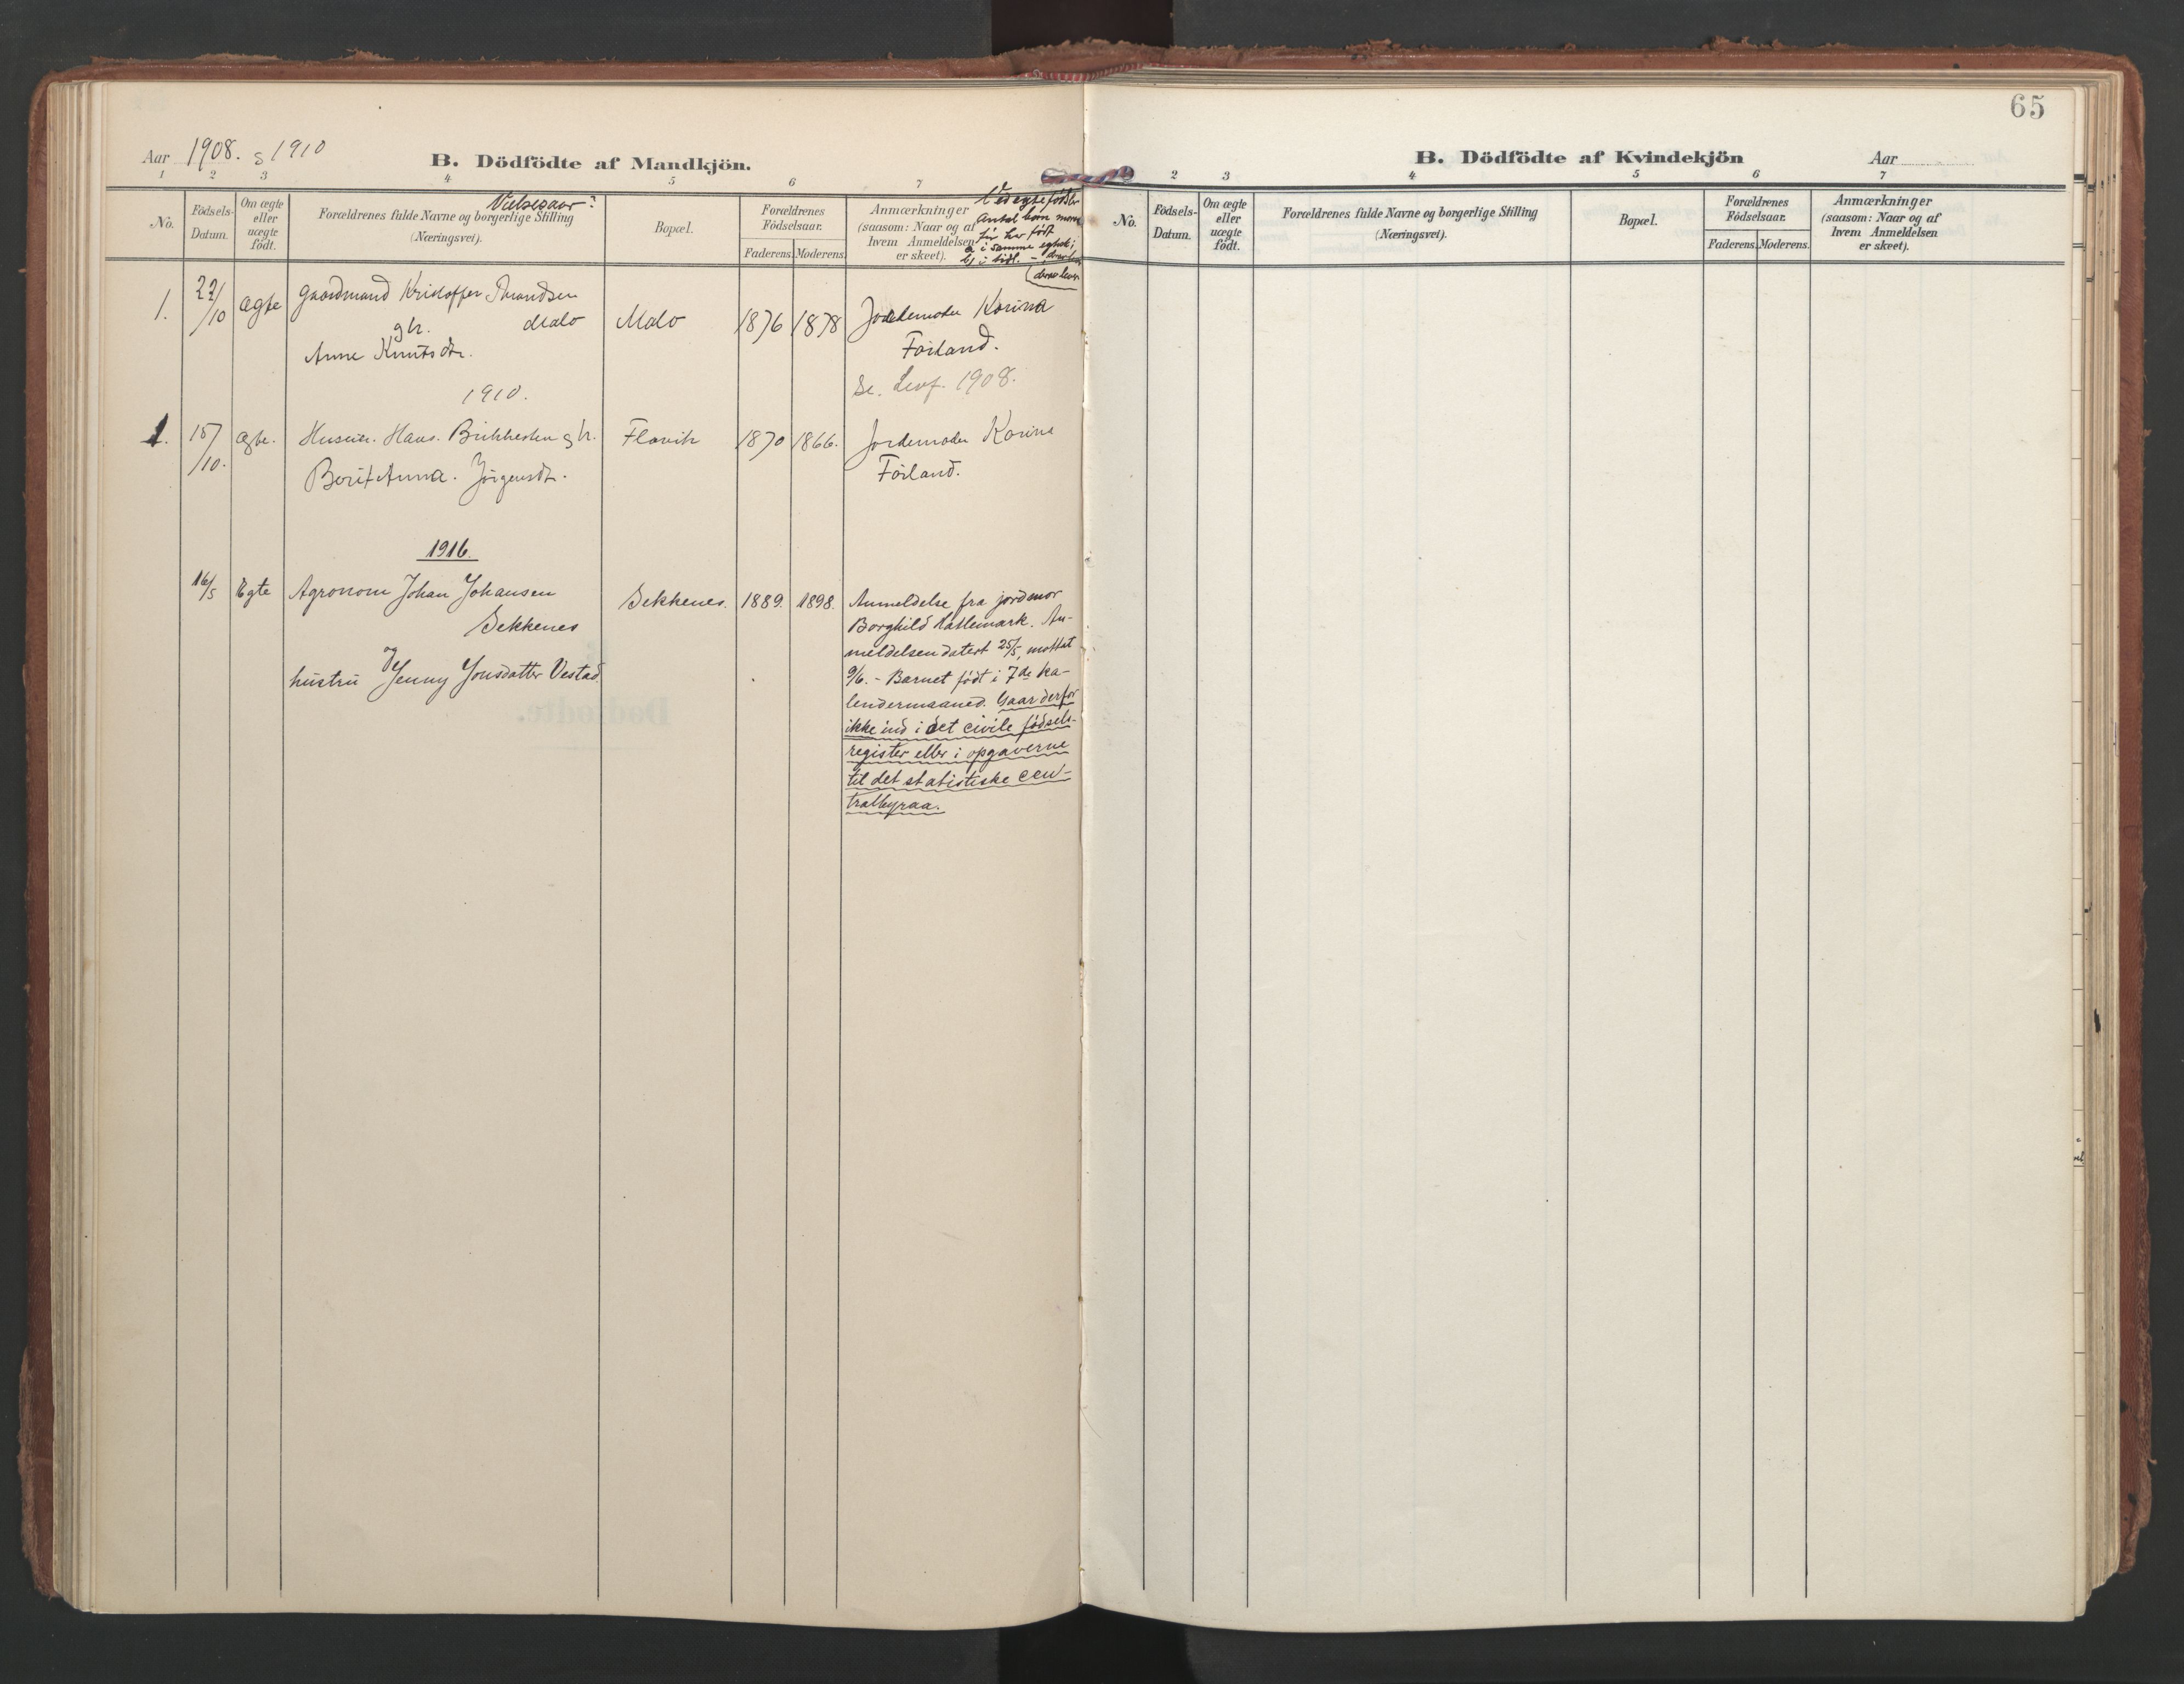 Aar 1908. & 1910
B. Dödfödte af Mandkjön.
1 2 3 4 5 6 7
No.
Födsels-
Datum.
Om ægte
eller
uægte
födt.
Vielsesaar:
Forældrenes fulde Navne og borgerlige Stilling
(Næringsvei).
Bopæl.
Forældrenes
Födselsaar.
Faderens. Moderens.
Anmærkninger
(saasom: Naar og af
hvem Anmeldelsen
er skeet).
Ved egte fødsler
Antal børn moren
før har født
a i samme egtsk;
b) i tidl. –
derav lever
1. 22/10 ægte Gaardmand Kristoffer
gh. Malo
Anne Knutsdtr.
Malo 1876 1878 Jordemoder Karina
Förland.
Se. Levf. 1908.
1910.
1. 15/10. ægte. Hans. &h.
Berit Anna. Jörgensdt.
Flovik 1870 1866. Jordemoder Karina
Förland.
1916.
16/5 Egte Agronom Johan Johansen
Sekkenes
og
hustru Jenny Jonsdatter Vestad
Sekkenes. 1889. 1898.
Anmeldelse fra jordmor
Borghild Hatlemark. An-
meldelsen datert 25/5, mottat
9/6. - Barnet født i 7de ka-
lendermaaned. Gaar derfor
ikke ind i det civile fødsels-
register eller i opgaverne
til det statistiske cen-
tralbyraa.
65
B. Dödfödte af Kvindekjön
Aar
2 3 4 5 6 7
No.
Födsels-
Datum.
Om ægte
eller
uægte
födt.
Forældrenes fulde Navne og borgerlige Stilling
(Næringsvei).
Bopæl.
Forældrenes
Födselsaar.
Faderens. Moderens.
Anmærkninger
(saasom: Naar og af
hvem Anmeldelsen
er skeet).